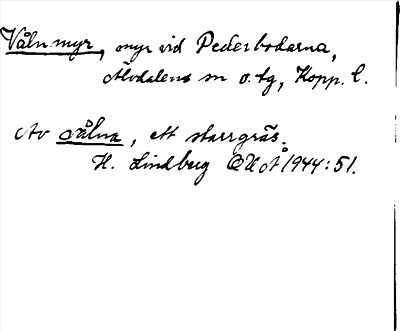 Vålnmyr, myr vid Pederbodarna,
Älvdalens sn o. tg, Kopp. l.
Av vålna, ett starrgräs.
H. Lindberg OUoÅ 1944:51.